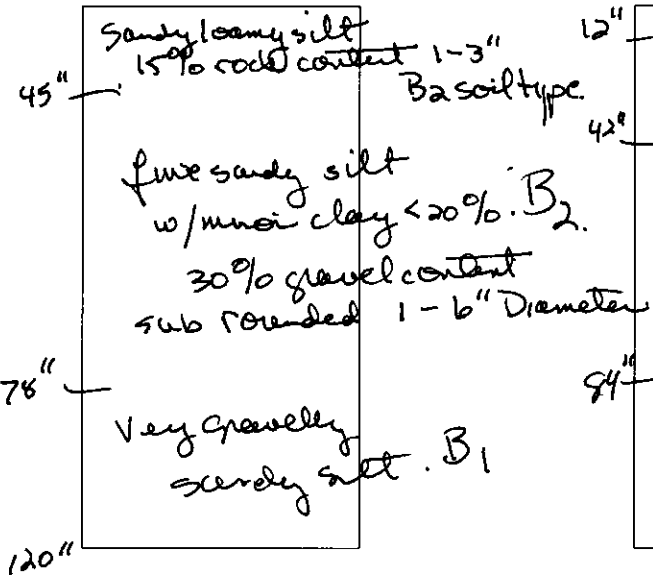 Sandy loamy silt
15% rock content 1-3"
B2 soil type.
45"
fine sandy silt
w/minor clay <20%. B2.
30% gravel content
sub rounded 1-6" Diameter
78"
Very gravelly
sandy silt. B1
120"
12"
42"
84"